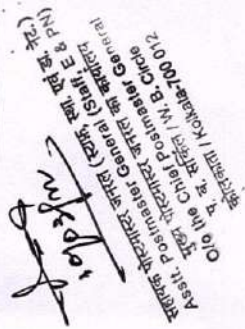 सहायक पोस्टमास्टर जनरल (स्टाफ, स्था. एवं डा. नेट)
Asstt. Postmaster General (Staff, E & PN)
मुख्य पोस्टमास्टर जनरल का कार्यालय
O/o the Chief Postmaster General
प. बं. सर्किल / W. B. Circle
कोलकाता / Kolkata-700 012